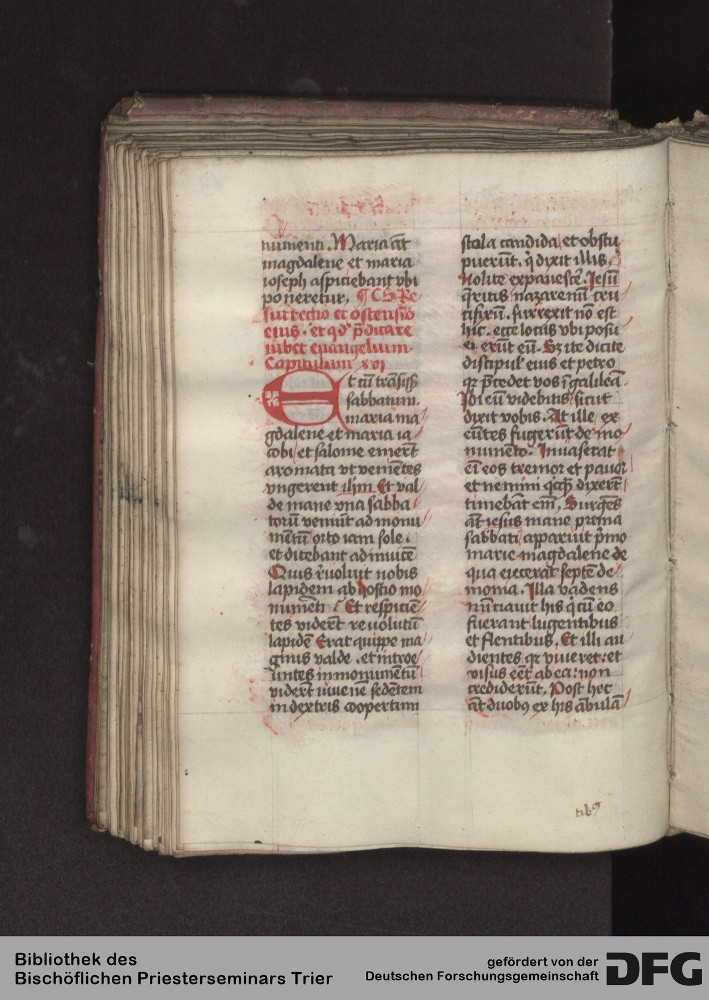 numenti. Maria aūt
magdalene et maria
ioseph aspiciebant vbi
poneretur,
surrectio et ostensio
eius. et qd' p̄dicare
iubet euangelium.
Capitulum xvi
Et cū trāsiss
sabbatum.
maria ma
gdalene et maria ia
cobi et salome emerūt
aromata vt veniētes
vngerent ihm Et val
de mane vna sabba
torū veniūt ad monu
mētū orto iam sole.
et dicebant ad inuicē
Quis r̄uoluit nobis
lapidem ab hostio mo
numēti Et respiciē
tes viderūt reuolutū
lapidē Erat quippe ma
gnus valde. et introe
untes in monumētū
viderūt iuuenē sedētem
in dextris coopertum
stola candida et obstu
puerūt. q̄ dixit illis,
Nolite expauescē. Jesū
q̄ritis nazarenū cru
cifixū. surrexit nō est
hic. ecce locus vbi posu
erūt eū. Sz ite dicite
discipul' eius et petro
qz p̄cedet vos ī galileā.
Jbi eū videbitis sicut
dixit vobis. At ille ex
eūtes fugerūt de mo
numēto. Jnuaserat
eī eos tremor et pauor
et nemini qicqz dixerūt
timebāt eīm, Surgēs
aūt iesus mane prima
sabbati apparuit p̄mo
marie magdalene de
qua eiecerat septē de
monia. Jlla vadens
nūciauit his q̄ cū eo
fuerant lugentibus
et flentibus. Et illi au
dientes qz viueret. et
visus eēt ab ea. non
crediderūt. Post hec
aūt duobꝰ ex his ābulā
tibꝰ
Bibliothek des
Bischöflichen Priesterseminars Trier
gefördert von der
Deutschen Forschungsgemeinschaft
DFG